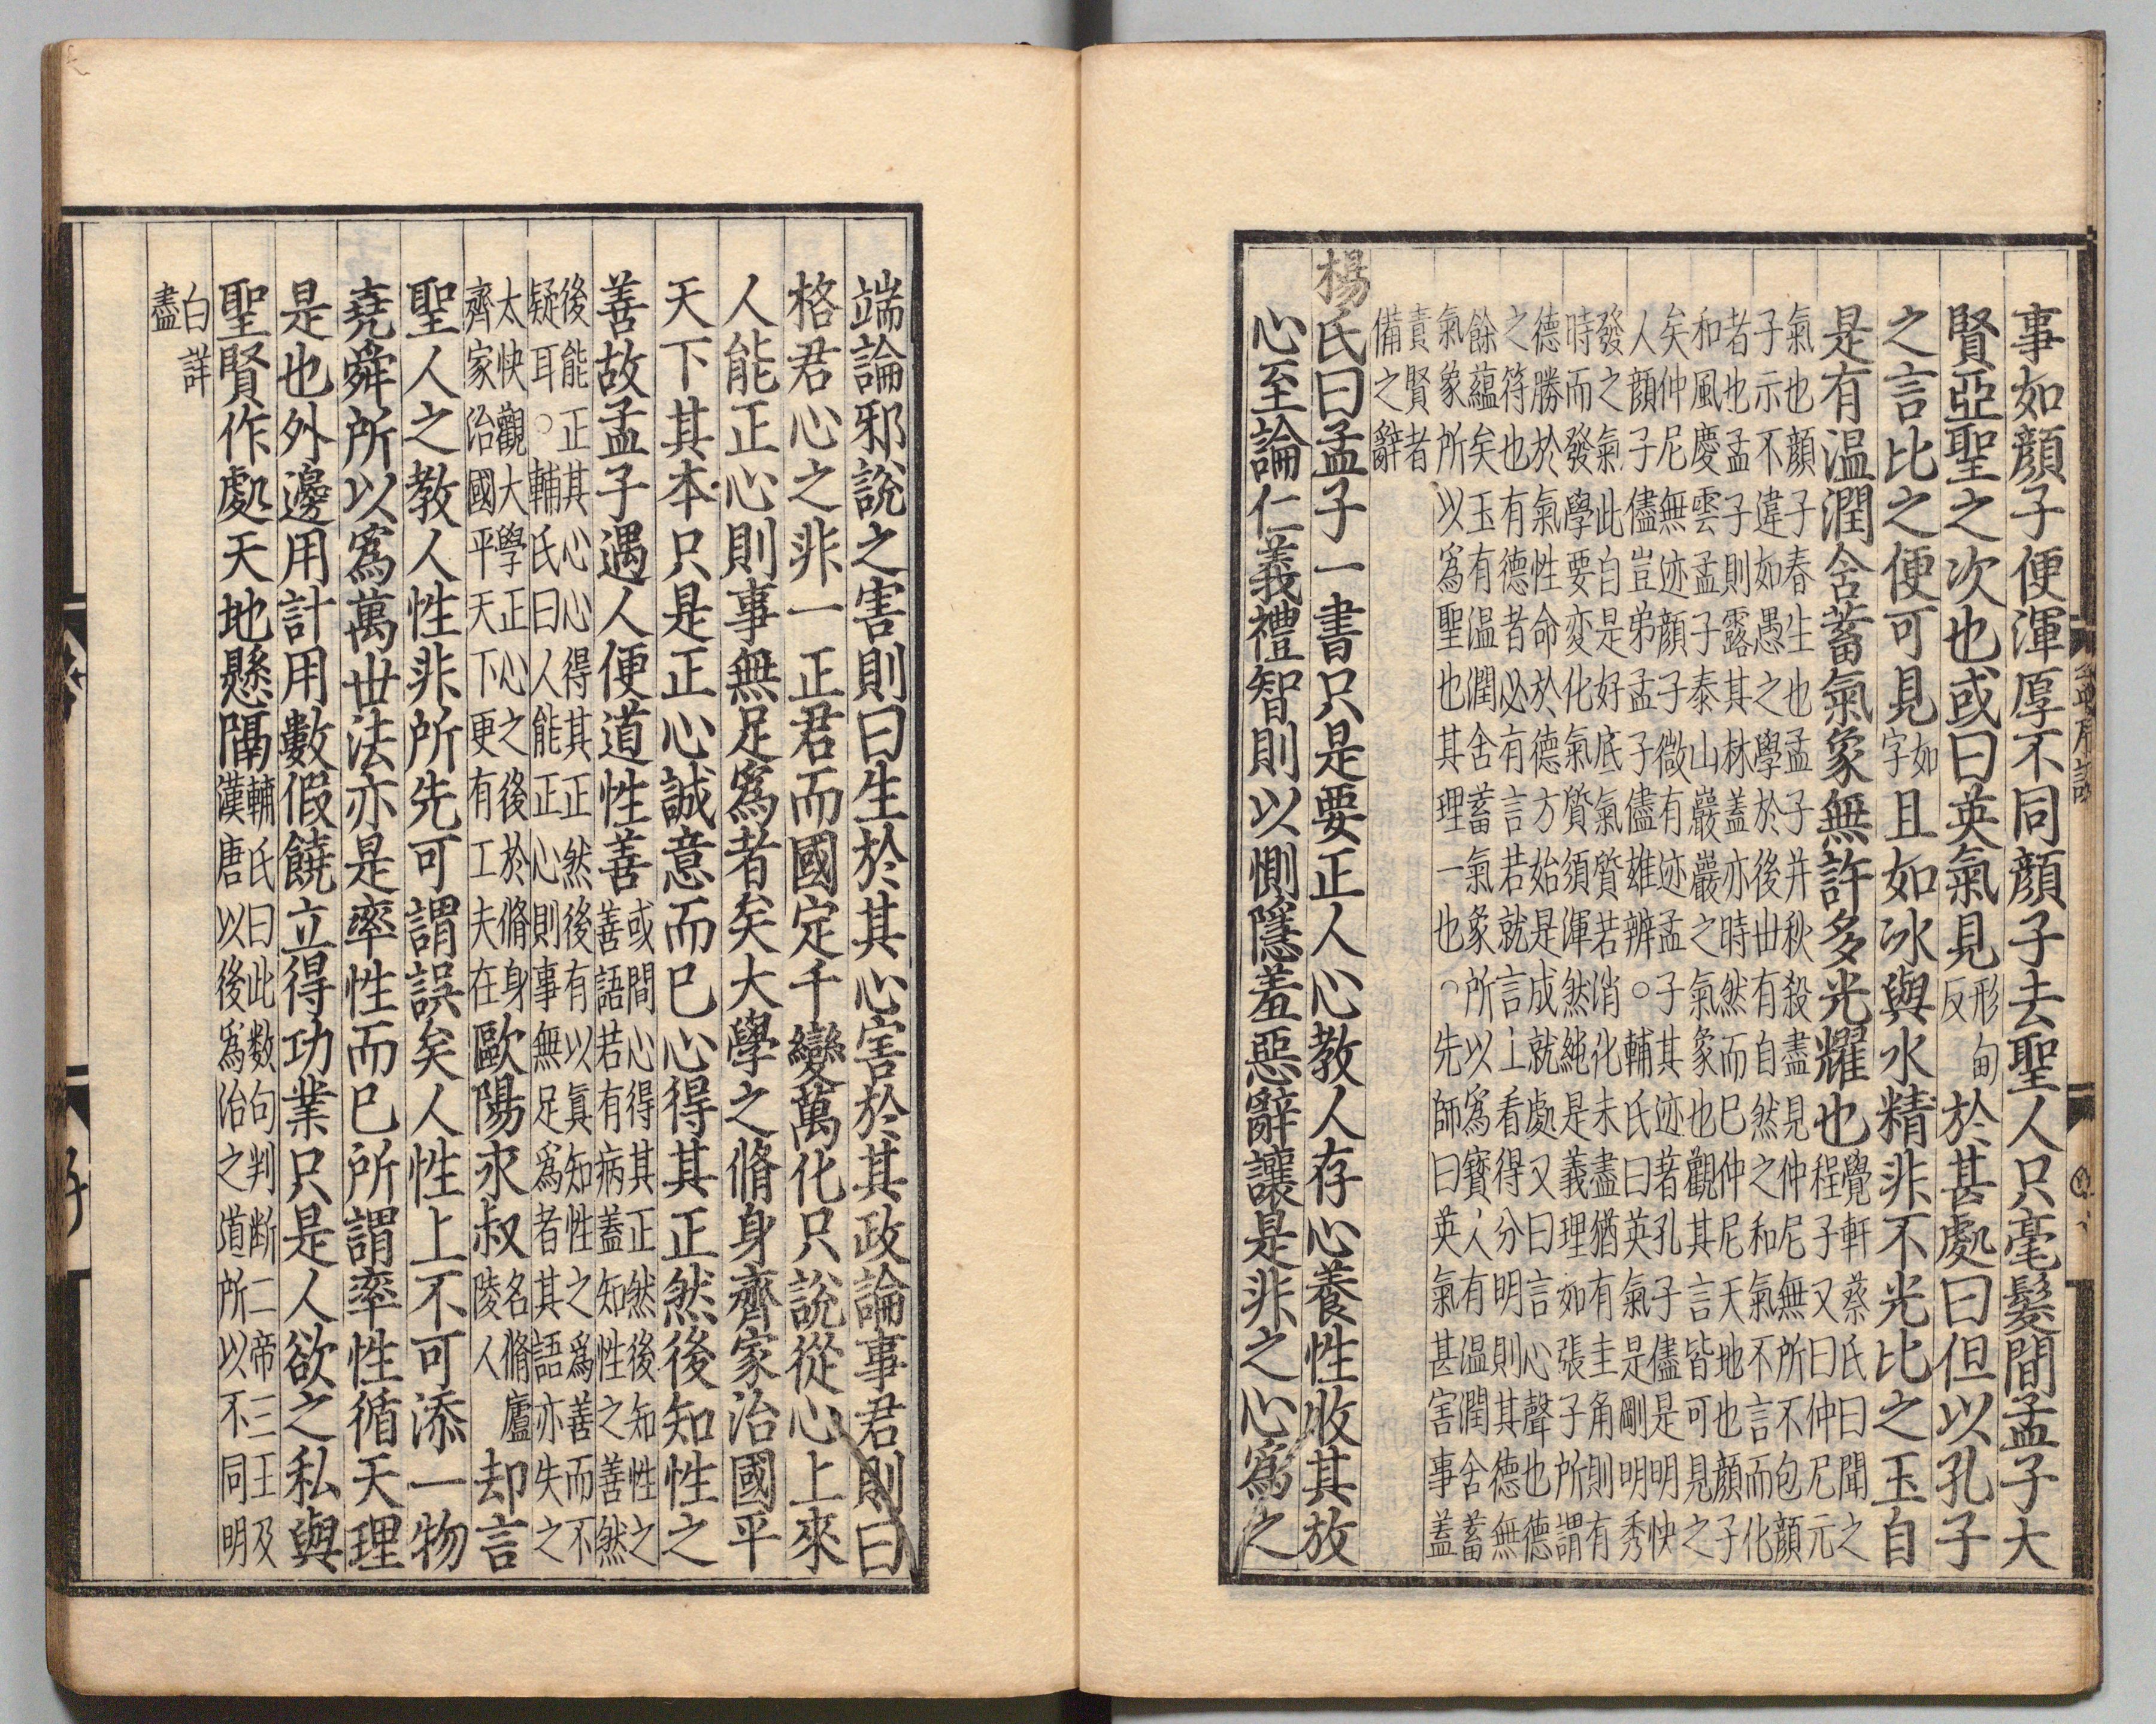 事如顔子便渾厚不同顔子去聖人只毫髮間孟子大
賢亞聖之次也或曰英氣見形甸反於甚處曰但以孔子
之言比之便可見如字且如冰與水精非不光比之玉自
是有温潤含蓄氣象無許多光耀也覺軒蔡氏曰聞之程子又曰仲尼元
氣也顔子春生也孟子并秋殺盡見仲尼無所不包顔
子示不違如愚之學於後世有自然之和氣不言而化
者也孟子則露其材蓋亦時然而已仲尼天地也顔子
和風慶雲孟子泰山巖巖之氣象也觀其言皆可見之
矣仲尼無迹顔子微有迹孟子其迹著孔子儘是明快
人顔子儘豈弟孟子儘雄辨○輔氏曰英氣是剛明秀
發之氣此自是好底氣質若消化未盡猶有圭角則有
時而發學要変化氣質須渾然純是義理如張子所謂
德勝於氣性命於德方始是成就處又曰言心聲也德
之符也有德者必有言若就言上看得分明則其德無
餘蘊矣玉有温潤含蓄氣象所以爲寶人有温潤含蓄
氣象所以爲聖也其理一也○先師曰英氣甚害事蓋
責賢者
備之辭
楊氏曰孟子一書只是要正人心教人存心養性收其放
心至論仁義禮智則以惻隱羞惡辭讓是非之心爲之
端論邪說之害則曰生於其心害於其政論事君則曰
格君心之非一正君而國定千變萬化只說從心上來
人能正心則事無足爲者矣大學之脩身齊家治國平
天下其本只是正心誠意而已心得其正然後知性之
善故孟子遇人便道性善或問心得其正然後知性之善語若有病蓋知性之善然
後能正其心心得其正然後有以真知性之爲善而不
疑耳○輔氏曰人能正心則事無足爲者其語亦失之
太快觀大學正心之後於脩身
齊家治國平天下更有工夫在歐陽永叔名脩廬陵人却言
聖人之教人性非所先可謂誤矣人性上不可添一物
堯舜所以爲萬世法亦是率性而已所謂率性循天理
是也外邊用計用數假饒立得功業只是人欲之私與
聖賢作處天地懸隔輔氏曰此数句判断二帝三王及漢唐以後爲治之道所以不同明
白詳
盡